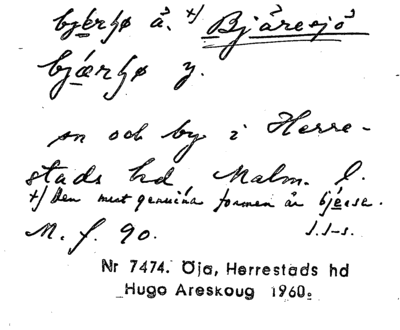 bjérʃø å. +/ Bjäresjö
bjǽrʃø y.
sn och by i Herre-
stads hd Malm. l.
+/ Den mest genuina formen är bjérsa.
M. f. 90. J.J-s.
Nr 7474. Öja, Herrestads hd
Hugo Areskoug 1960.